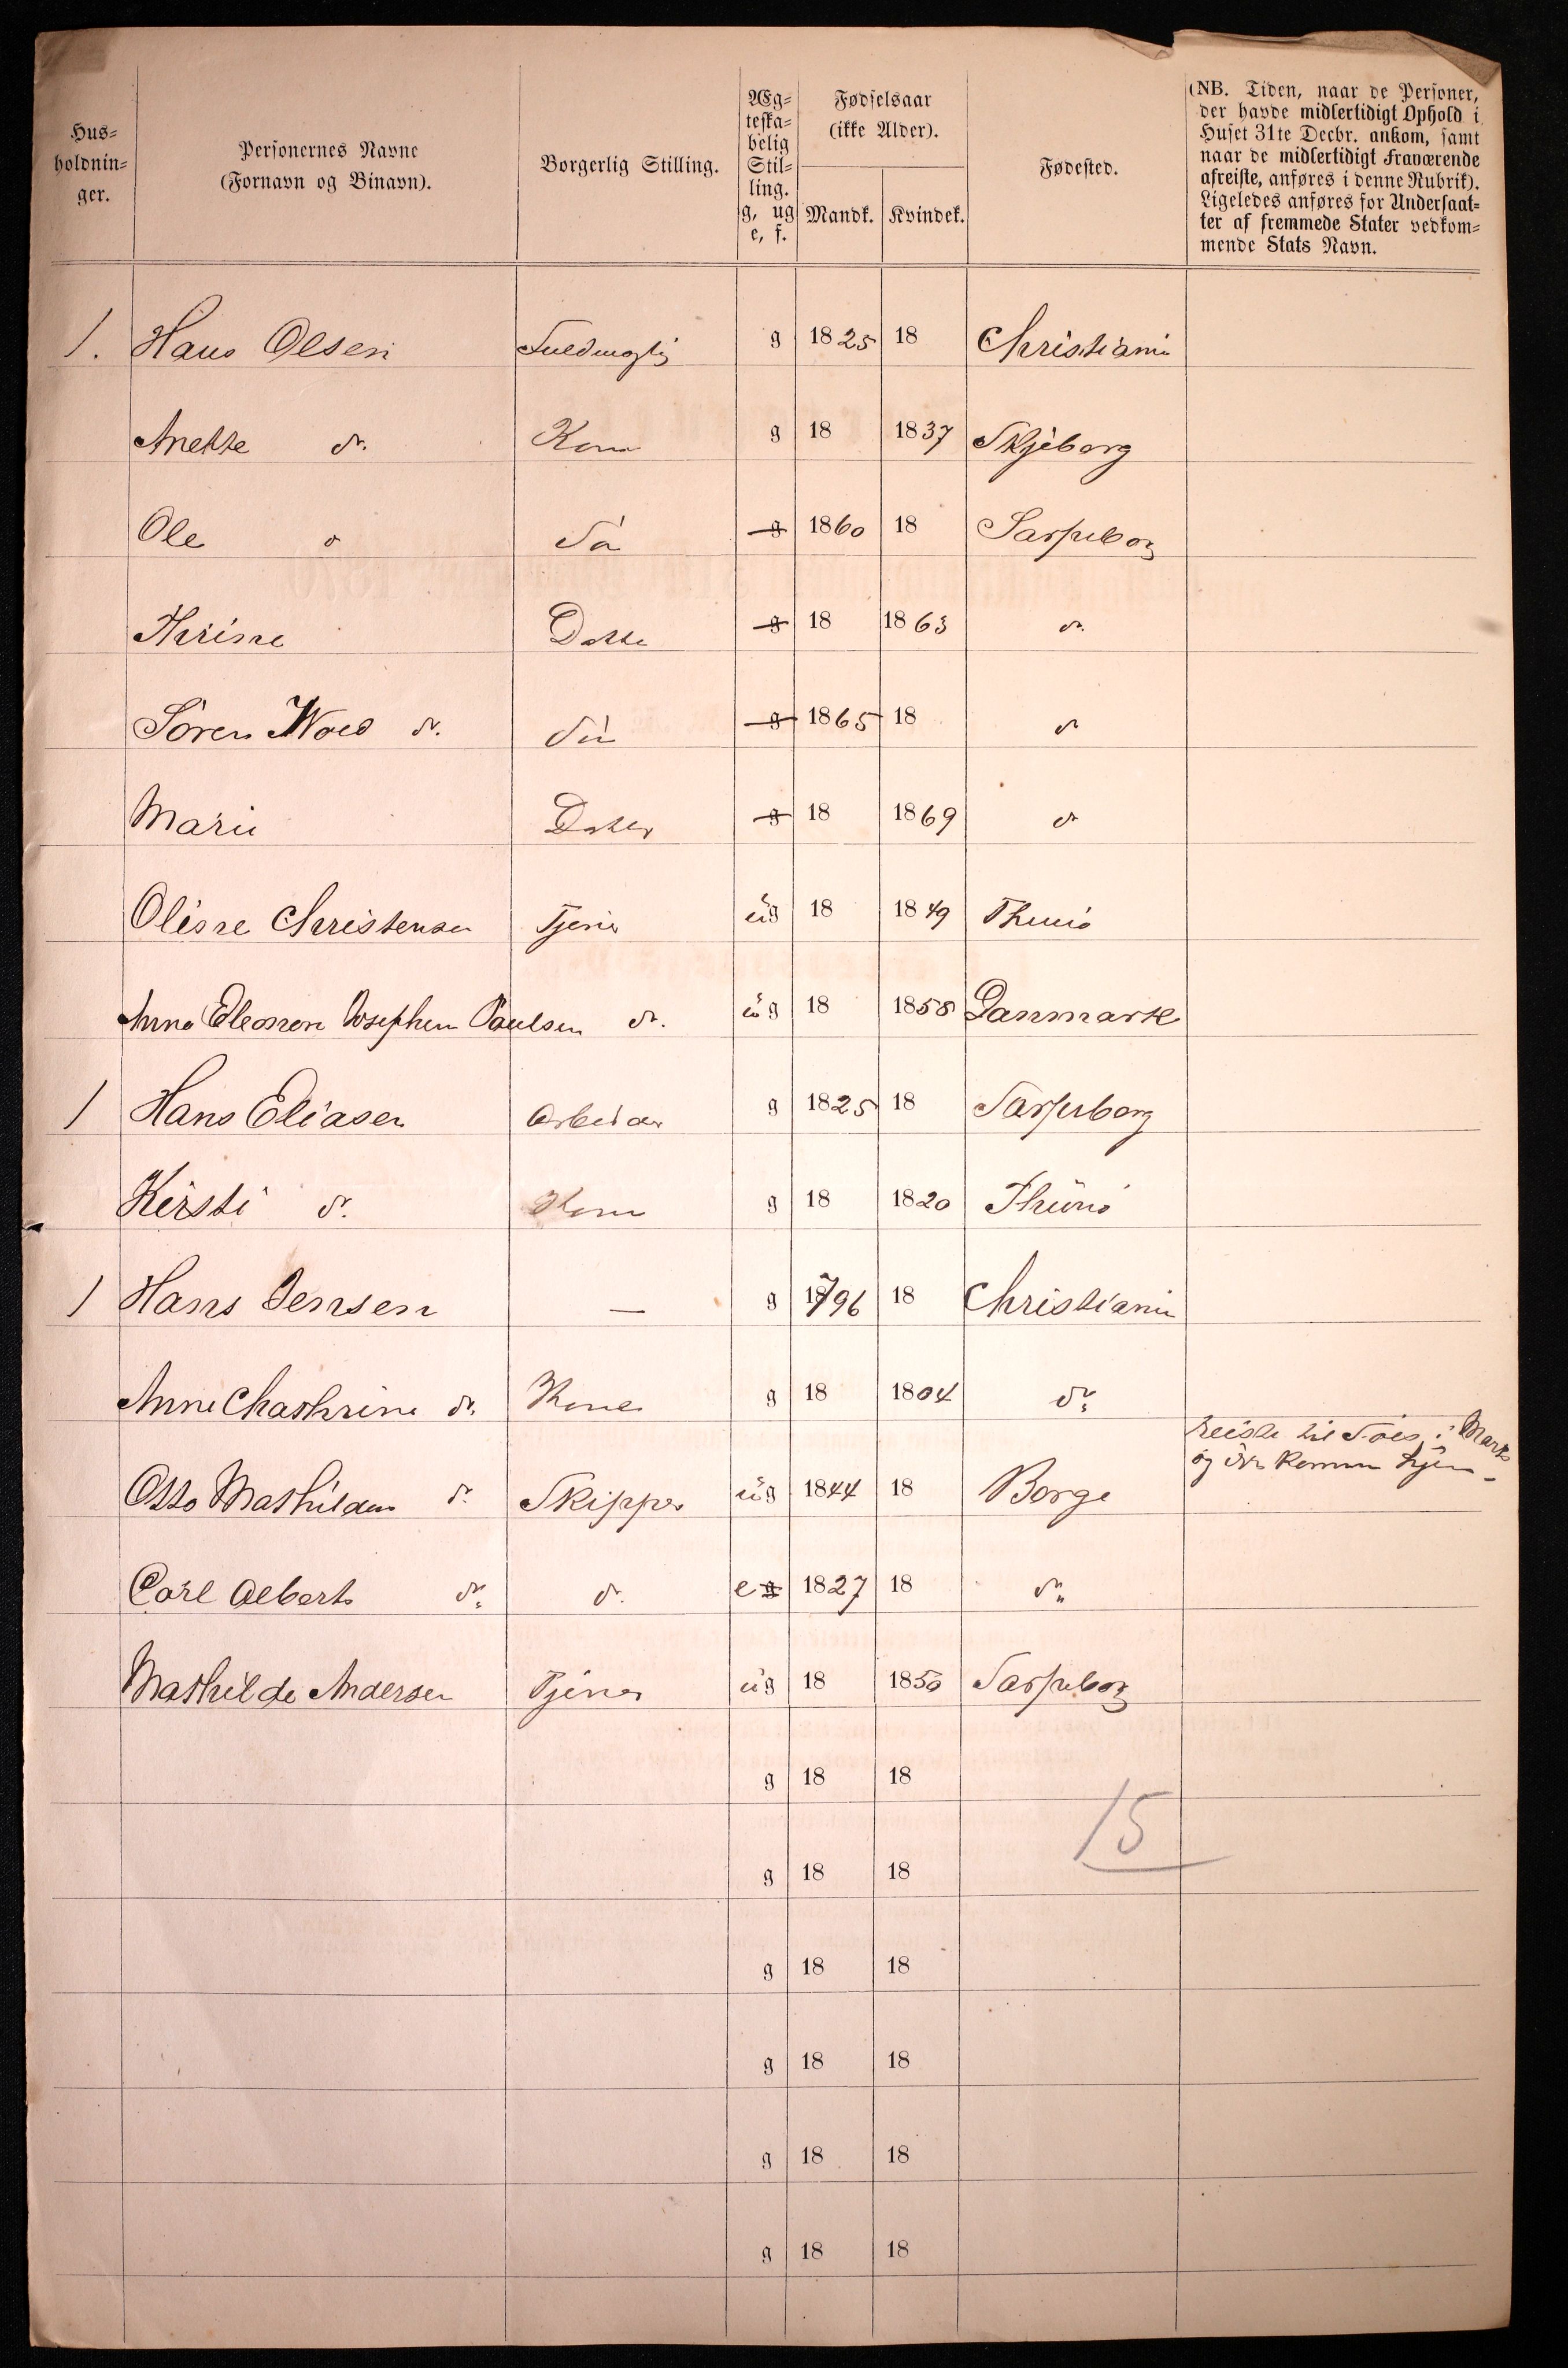 Hus-
holdnin-
ger.
Personernes Navne
(Fornavn og Binavn).
Borgerlig Stilling.
Æg-
teska-
belig
Stil-
ling.
g, ug
e, f.
Fødselsaar
(ikke Alder).
Mandk. Kvindek.
Fødested.
(NB. Tiden, naar de Personer,
der havde midlertidigt Ophold i
Huset 31te Decbr. ankom, samt
naar de midlertidigt fraværende
afreiste, anføres i denne Rubrik).
Ligeledes anføres for Undersaat-
ter af fremmede Stater vedkom-
mende Stats Navn.
1. Hans Olsen g 1825 18 Christiania
Anette do. Kone g 18 1837 Skjeberg
Ole do Søn g 1860 18 Sarpsborg
Datter g 18 1863 do.
Søren do. Søn g 1865 18 do
Marie Datter g 18 1869 do
Olisne Christensen Tjener ug 18 1849 Thunø
Anne Eleonore Josephine Paulsen do. ug 18 1858 Danmark
1 Hans Eliasen Arbeider g 1825 18 Sarpsborg
Kirsti do. Kone g 18 1820 Thunø
1 Hans Jensen — g 1796 18 Christiania
Anne Chathrine do. Kone g 18 1804 do.
reiste til Søes i Marts
og kommen hjem
Otto Mathildus do. Skipper ug 1844 18 Borge
Carl Albert do. do. e g 1827 18 do.
Mathilde Andersen Tjener ug 18 1850 Sarpsborg
g 18 18
15
g 18 18
g 18 18
g 18 18
g 18 18
g 18 18